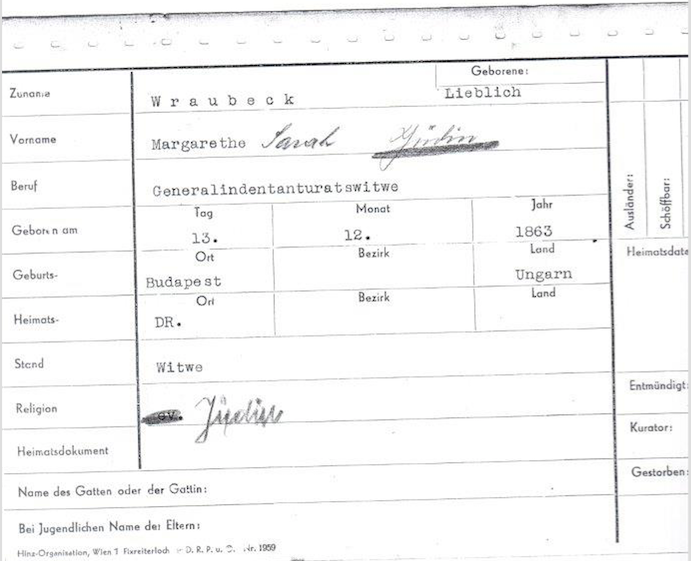 Geborene:
Zuname Wraubeck Lieblich
Vorname Margarethe Sarah Jüdin
Beruf Generalindentanturatswitwe
Tag Monat Jahr
Geboren am 13. 12. 1863
Ort Bezirk Land
Geburts- Budapest Ungarn
Ort Bezirk Land
Heimats- DR.
Stand Witwe
Religion ev. Jüdin
Heimatsdokument
Name des Gatten oder der Gattin:
Bei Jugendlichen Name der Eltern:
Hinz-Organisation, Wien 7 Fixreiterloch D. R. P. u. Nr. 1959
Ausländer:
Schöffbar:
Heimatsdate
Entmündigt:
Kurator:
Gestorben: